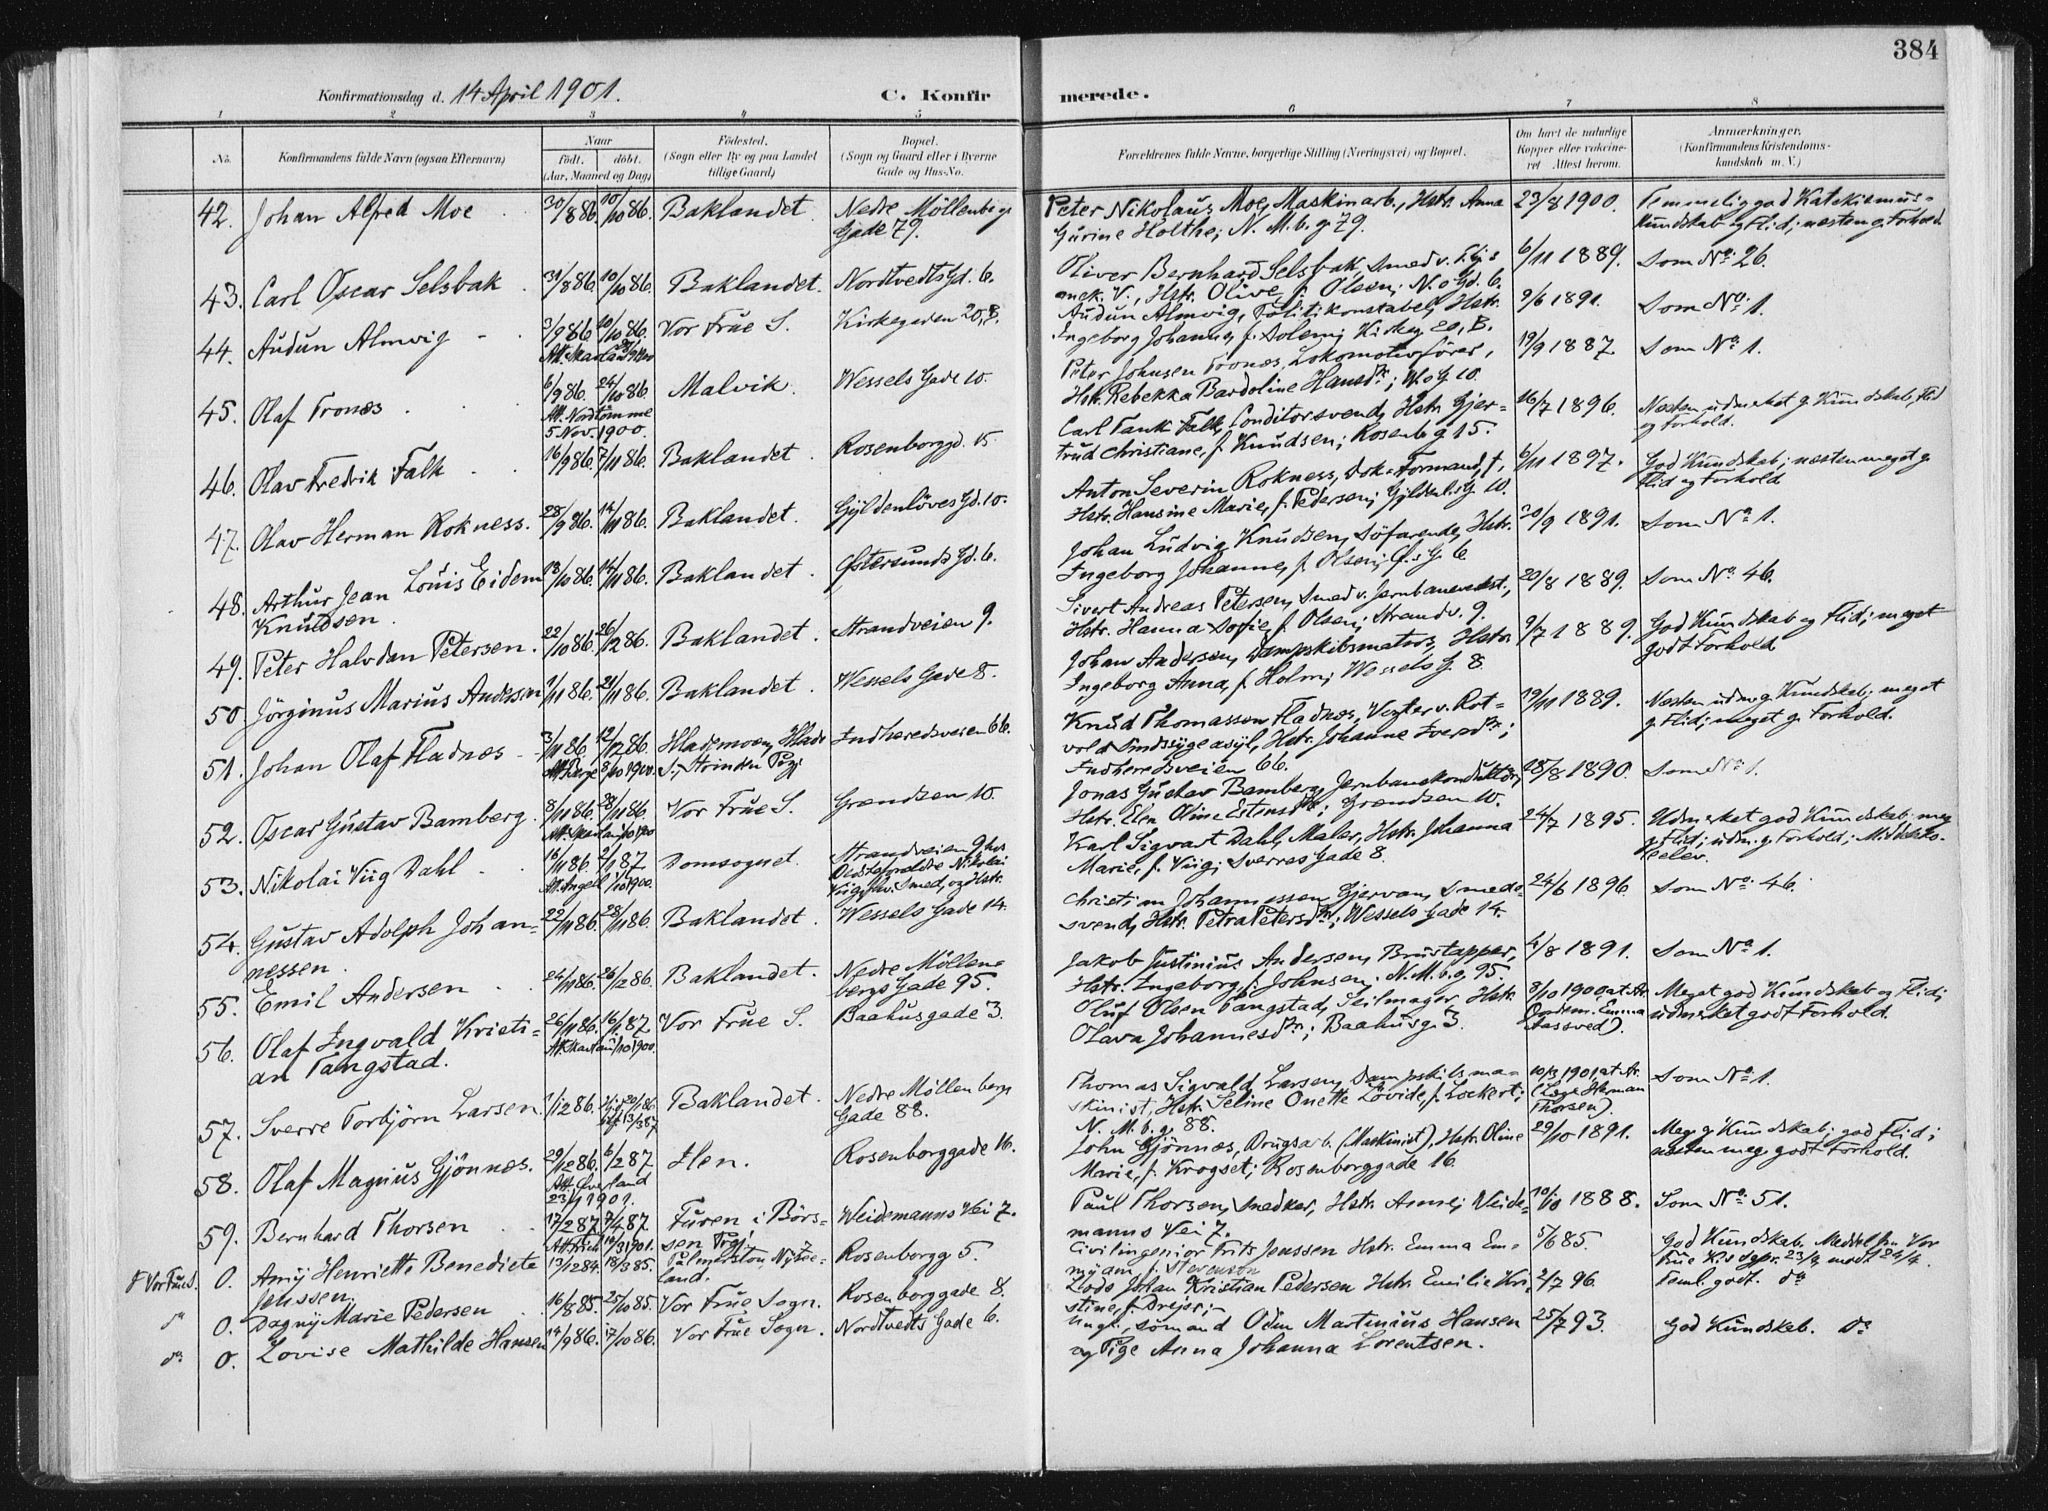 384
Konfirmationsdag d. 14 April 1901. C. Konfirmerede.
1 2 3 4 5 6 7 8
No. Konfirmandens fulde Navn (ogsaa Efternavn) Naar født. døbt. (Aar, Maaned og Dag) Fødested. (Sogn eller By og paa Landet tillige Gaard) Bopæl. (Sogn og Gaard eller i Byerne Gade og Hus-No.
Forældrenes fulde Navne, borgerlige Stilling (Næringsvei) og Bopæl. Om havt de naturlige Kopper eller vakcineret Attest herom. Anmærkninger. (Konfirmandens Kristendomskundskab m. V.)
42. Johan Alfred Moe 30/8 86. 10/10 86. Baklandet. Nedre Møllenbergs Gade 79.
Peter Nikolaus Moe, Maskinarb., Hstr. Anna Gurine Holthe; N. M. b. g. 79. 23/8 1900. Temmelig god Katekismuskundskab og Flid; næsten g. Forhold.
43. Carl Oscar Selsbak 31/8 86. 10/10 86. Baklandet. Nordtvedts Gd. 6.
Oliver Bernhard Selsbak, Smed v. Hstr. Olive f. Olsen; N. Gd. 6. 6/11 1889. Som No. 26.
44. Audun Almvig 3/9 86. 10/10 86. Vor Frue S. Kirkegaden 20, B.
Audun Almvig, Politikonstabel, Hstr. Ingeborg Johanne, f. Solem; Kirkeg. 20, B. 9/6 1891. Som No. 1.
45. Olaf Fronæs 6/9 86. 24/10 86. Att. Nordtømme 5 Nov. 1900. Malvik. Wessels Gade 10.
Peter Johnsen Fronæs, Lokomotivfører, Hstr. Rebekka Bardoline Hansdtr.; W.s G. 10. 19/9 1887. Som No. 1.
46. Olav Fredrik Falk 16/9 86. 7/11 86. Baklandet. Rosenborggd. 15.
Carl Tank Falk, Conditorsvend, Hstr. Gjertrud Christiane, f. Knudsen; Rosenb. g. 15. 16/7 1896. Næsten udmerket g. Kundskab, Flid og Forhold.
47. Olav Herman Rokness. 28/9 86. 14/11 86. Baklandet. Gyldenløves Gd. 10.
Anton Severin Rokness, Dok-Formand, †, Hstr. Hansine Marie, f. Pedersen; Gyldenl. G. 10. 6/11 1897. God Kundskab; næsten meget g. Flid og Forhold.
48. Arthur Jean Louis Eidem Knudsen. 13/10 86. 14/11 86. Baklandet. Østersunds Gd. 6.
Johan Ludvig Knudsen, Søfarende, Hstr. Ingeborg Johanne, f. Olsen; Ø.s G. 6. 20/9 1891. Som No. 1.
49. Peter Halvdan Petersen. 22/10 86. 26/12 86. Baklandet. Strandveien 9.
Sivert Andreas Petersen, Smed v. Jernbaneverkst., Hstr. Hanna Sofie, f. Olsen; Strandv. 9. 20/8 1889. Som No. 46.
50. Jørginus Marius Andersen 1/11 86. 21/11 86. Baklandet. Wessels Gade 8.
Johan Andersen, Dampskibsmatros, Hstr. Ingeborg Anna, f. Holm; Wessels G. 8. 9/7 1889. God Kundskab og Flid; meget godt Forhold.
51. Johan Olaf Fladnæs 3/11 86. 12/12 86. Att. Berge 8/10 1900. Hlademoen, Hlade S., Strinden Pgj. Indherredsveien 66.
Knud Thomassen Fladnæs, Vogter v. Rotvold Sindssygeasyl, Hstr. Johanne Iversdtr.; Indherredsveien 66. 19/11 1889. Næsten udm. g. Kundskab; meget g. Flid; meget g. Forhold.
52. Oscar Gustav Bamberg. 8/11 86. 28/11 86. Vor Frue S. Grændsen 10.
Jonas Gustav Bamberg, Jernbanekonduktør, Hstr. Elen Oline Estensdtr.; Grændsen 10. 28/8 1890. Som No. 1.
53. Nikolai Viig Dahl 16/11 86. 2/1 87. Att. Angell 1/10 1900. Domsognet. Strandveien 9 hos Bedsteforældre Nikolai Viig, fhv. Smed, og Hstr.
Karl Sigvart Dahl, Maler, Hstr. Johanna Marie, f. Viig; Sverres Gade 8. 24/7 1895. Udmerket god Kundskab; meg. g. Flid; udm. g. Forhold; Middelsk.-elev.
54. Gustav Adolph Johannessen. 22/11 86. 28/11 86. Baklandet. Wessels Gade 14.
Christian Johannessen Gjervan, Smedesvend, Hstr. Petra Petersdtr.; Wessels Gade 14. 24/6 1896. Som No. 46.
55. Emil Andersen 24/11 86. 26/12 86. Baklandet. Nedre Møllenbergs Gade 95.
Jakob Justinius Andersen, Brustapper, Hstr. Ingeborg, f. Johnsen; N. M. b. g. 95. 4/8 1891. Som No. 1.
56. Olaf Ingvald Kristian Tangstad. 26/11 86. 16/1 87. Vor Frue S. Baahusgade 3.
Oluf Olsen Tangstad, Seilmager, Hstr. Olava Johannesdtr.; Baahusg. 3. 8/10 1900 Meget god Kundskab og Flid; udmerket godt Forhold.
57. Sverre Torbjørn Larsen 1/12 86. Baklandet. Nedre Møllenbergs Gade 88.
Thomas Sigvald Larsen, Dampskibsmaskinist, Hstr. Seline Onette Lovide, f. Lockert; N. M. b. g. 88. 10/3 1901 at. Ar. (Læge Herman Thorsen). Som No. 1.
58. Olaf Magnus Gjønnæs. 29/12 86. 6/2 87. Att. Øverland 23/1 1901. Ilen. Rosenborggade 16.
John Gjønnæs, Brugsarb. (Maskinist), Hstr. Oline Marie, f. Krogset; Rosenborggade 16. 29/10 1891. Meg. g. Kundskab; god Flid; næsten meg. godt Forhold.
59. Bernhard Thorsen 17/2 87. 9/4 87. Furen i Børsen Pgj. Weidemanns Vei 7.
Paul Thorsen, Snedker, Hstr. Anne; Weidemanns Vei 7. 10/10 1888. Som No. 51.
f Vor Frue S. 0. Amy Henriette Benedicte Jenssen. 13/12 84. 18/3 85. Palmerston, Nyzeeland. Rosenborgg 5.
Civilingeniør Frits Jenssen Hstr. Emma f. Stevenson 5/6 85. God Kundskab. Meddel. fra Vor Frue
do 0. Dagny Marie Pedersen 16/8 85. 25/10 85. Vor Frue Sogn. Rosenborggade 8.
Lods Johan Kristian Pedersen Hstr. Emilie Kristine, f. Drejer. 2/7 96. Teml. godt. do
do 0. Lovise Mathilde Hansen 14/9 86. 17/10 86. Vor Frue Sogn. Nordtvedts Gade 6.
Ungk., Sømand Odin Martinius Hansen og Pige Anna Johanna Lorentsen. 25/7 93. God Kundskab. do